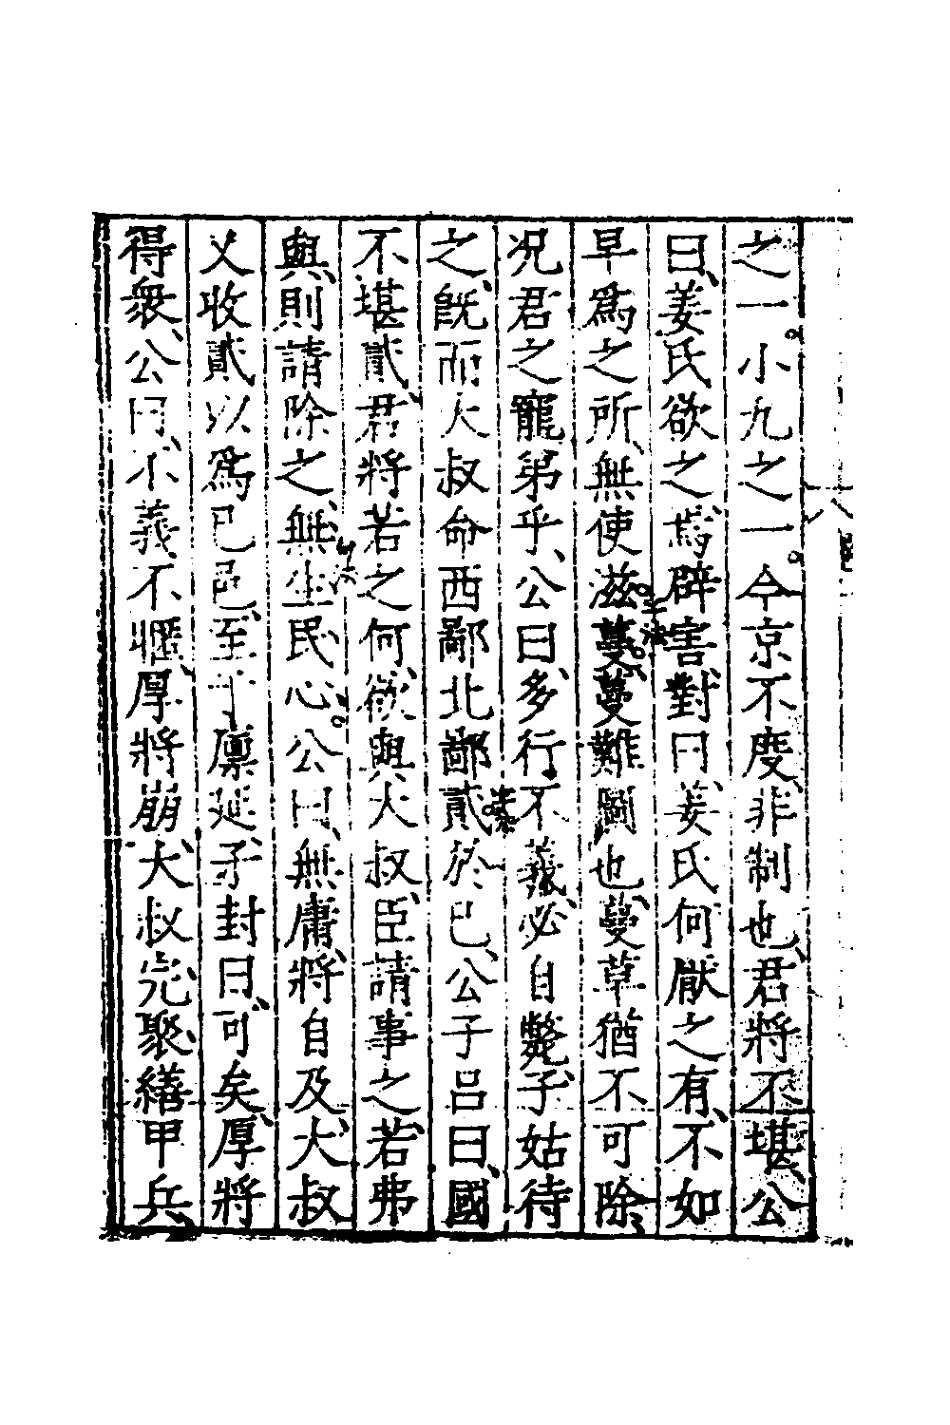 之一。小九之一。今京不度、非制也、君將不堪、公
曰、姜氏欲之、焉辟害、對曰、姜氏何厭之有、不如
早爲之所、無使滋蔓、蔓難圖也、蔓草猶不可除、
况君之寵弟乎、公曰、多行不義、必自斃、子姑待
之、旣而大叔命西鄙北鄙貳於已、公子呂曰、國
不堪貳、君將若之何、欲與大叔、臣請事之、若弗
與、則請除之、無生民心。公曰、無庸、將自及、大叔
又收貳以爲已邑、至于廩延、子封曰、可矣、厚將
得衆、公曰、不義不暱、厚將崩、大叔完、聚、繕甲兵、